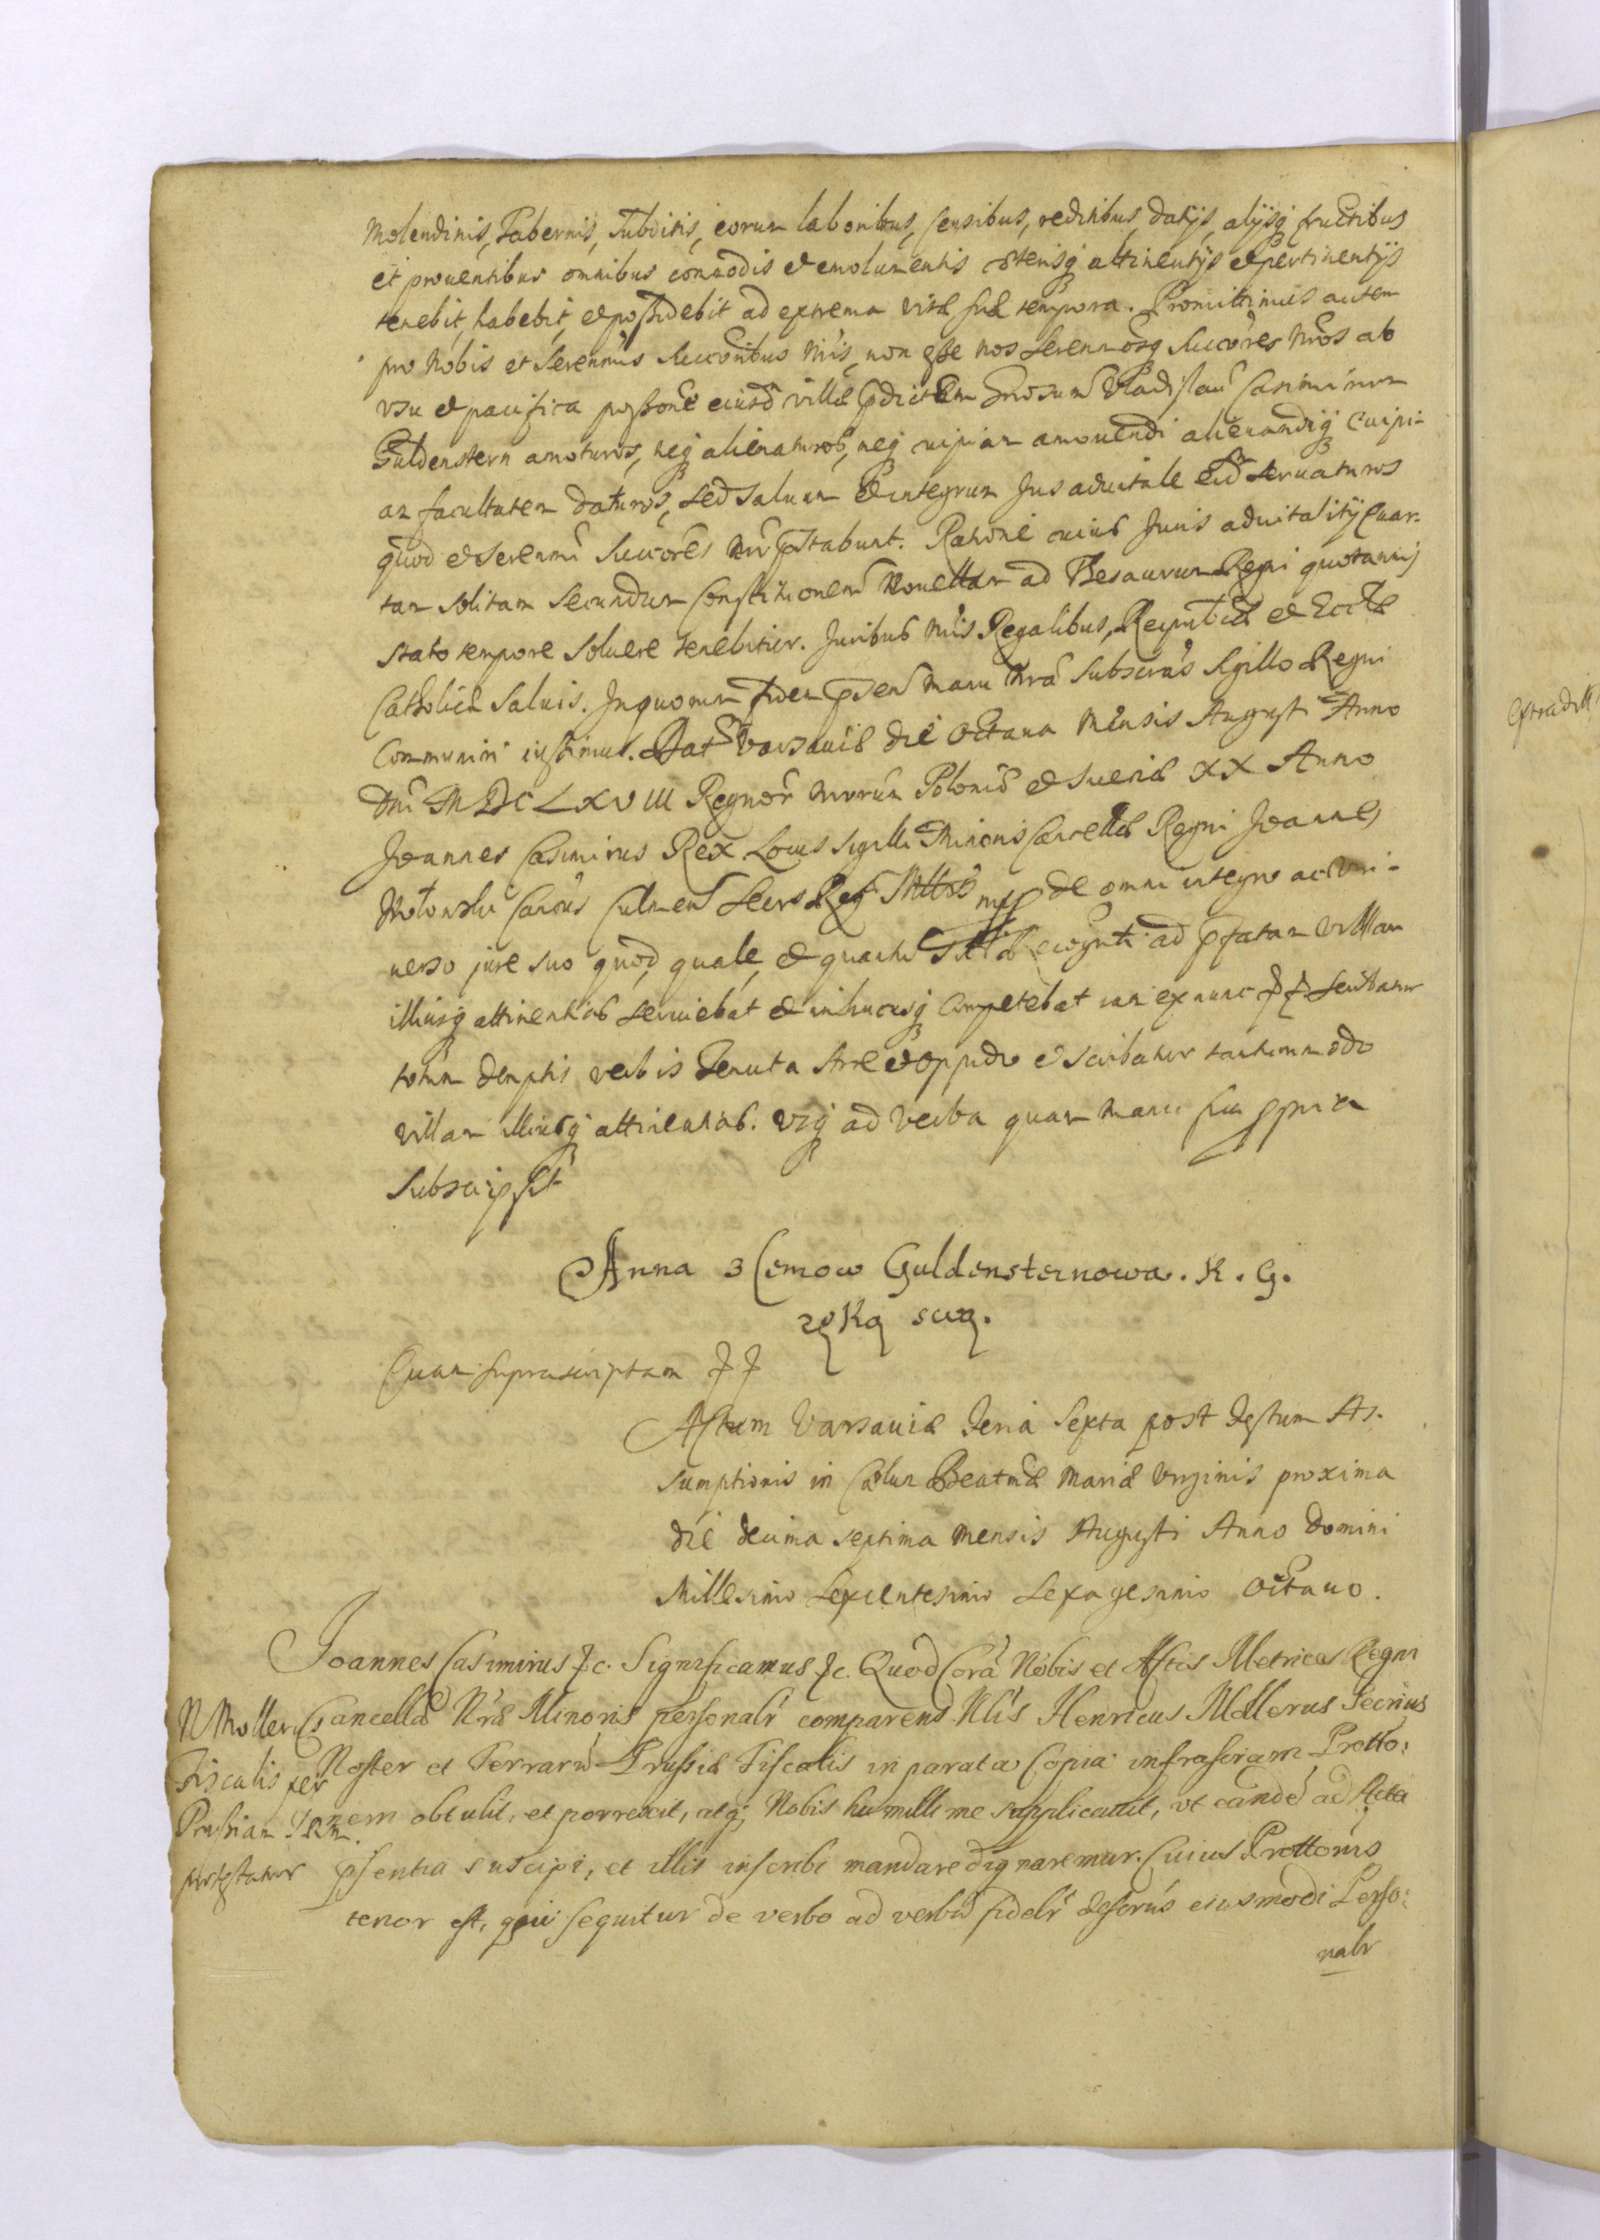 Molendinis, Tabernis, Subditis, eorum laboribus, censibus, reditibus, datijs, alijsq fructibus
et prouentibus omnibus comodis et emolumentis cæterisq attinentijs et pertinentijs
tenebit, habebit, et possidebit ad extrema vitæ suæ tempora. Promittimus autem
pro Nobis et Serenmis Succoribus Nris, non esse nos Serenmosq Succores Nros ab
vsu et pacifica possone eiusd villæ pdictum Gnosum Vladislau Casimirum
Guldenstern amoturos, neq alienaturos, neq cuipiam amouendi alienandiq cuipi-
am facultatem daturos, sed saluum et integrum Jus aduitale eid seruaturos
quod et Serenmi Succores Nri pstabunt. Ratione cuius Juris aduitalitij quar-
tam solitam secundum Constitutionem Nouellam ad Thesaurum Regni quotannis
stato tempore soluere tenebitur. Juribus Nris Regalibus, Reipublicæ et Eccliæ
Catholicæ saluis. In quorum fidem psen manu Nra subscras Sigillo Regni
Communiri iussimus. Dat Varsauiæ die Octaua Mensis Augusti Anno
Dni M DC LXVIII Regnor Nrorum Poloniæ et Sueciæ XX Anno
Joannes Casimirus Rex Locus Sigilli Minoris Cancellæ Regni Joannes
Canus Culmen Secrs Reg Mttis mpp de omni integro ac vni-
uerso jure suo quod, quale, et quantu recognti ad pfatam villam
illiusq attinentias seruiebat et in hucusq competebat iam ex nunc
totum demptis verbis Tenuta et oppido et scribatur tantummodo
villam illiusq attinentias. vsq ad verba quam manu sua ppria
subscripsit
Anna z Cemow Guldensternowa. K. G.
ręką swą.
Quam suprascriptam
Actum Varsauiæ Feria Sexta post Festum As-
sumptionis in Cælum Beatmæ Mariæ Virginis proxima
die decima septima Mensis Augusti Anno Domini
Millesimo Sexcentesimo Sexagesimo Octauo.
Joannes Casimirus &c. Significamus &c. Quod Corã Nobis et Actis Metrices Regni
Cancellæ Nræ Minoris personalr comparens Nlis Henricus Mollerus Secrius
Noster et Terrarũ Prussiæ Fiscalis in parata Copia infrascriam Protto:
nem obtulit, et porrexit, atq; Nobis humillime supplicauit, vt eandẽ ad Acta
psentia suscipi, et illis inscribi mandare dignaremur. Cuius Prottonis
tenor est, qui sequitur de verbo ad verbũ fidelr descrus eiusmodi Perso:
nalr
N Mollerus
Fiscalis per
Prussiam
protestatur